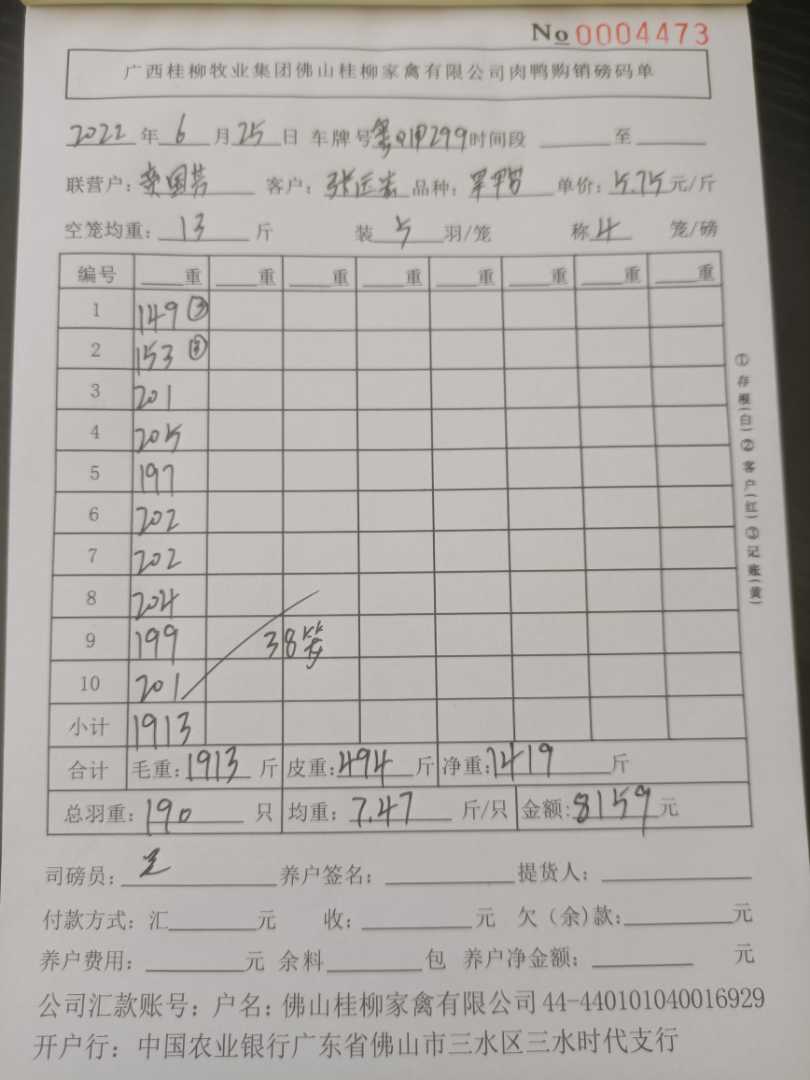 No 0004473
广西桂柳牧业集团佛山桂柳家禽有限公司肉鸭购销磅码单
2022 年 6 月 25 日 车牌号 299 时间段 至
联营户： 国芳 客户：张 品种： 单价：5.75 元/斤
空笼均重：13 斤 装 5 羽/笼 称 4 笼/磅
编号 重 重 重 重 重 重 重 重
1 149 ③
2 153
3 201
4 205
5 197
6 202
7 202
8 204
9 199 38笼
10 201
小计 1913
合计 毛重：1913 斤 皮重：494 斤 净重：1419 斤
总羽重：190 只 均重：7.47 斤/只 金额：8159 元
司磅员： 养户签名： 提货人：
付款方式：汇 元 收： 元 欠（余）款： 元
养户费用： 元 余料 包 养户净金额： 元
公司汇款账号：户名：佛山桂柳家禽有限公司 44-440101040016929
开户行：中国农业银行广东省佛山市三水区三水时代支行
①存根(白)②客户(红)③记账(黄)